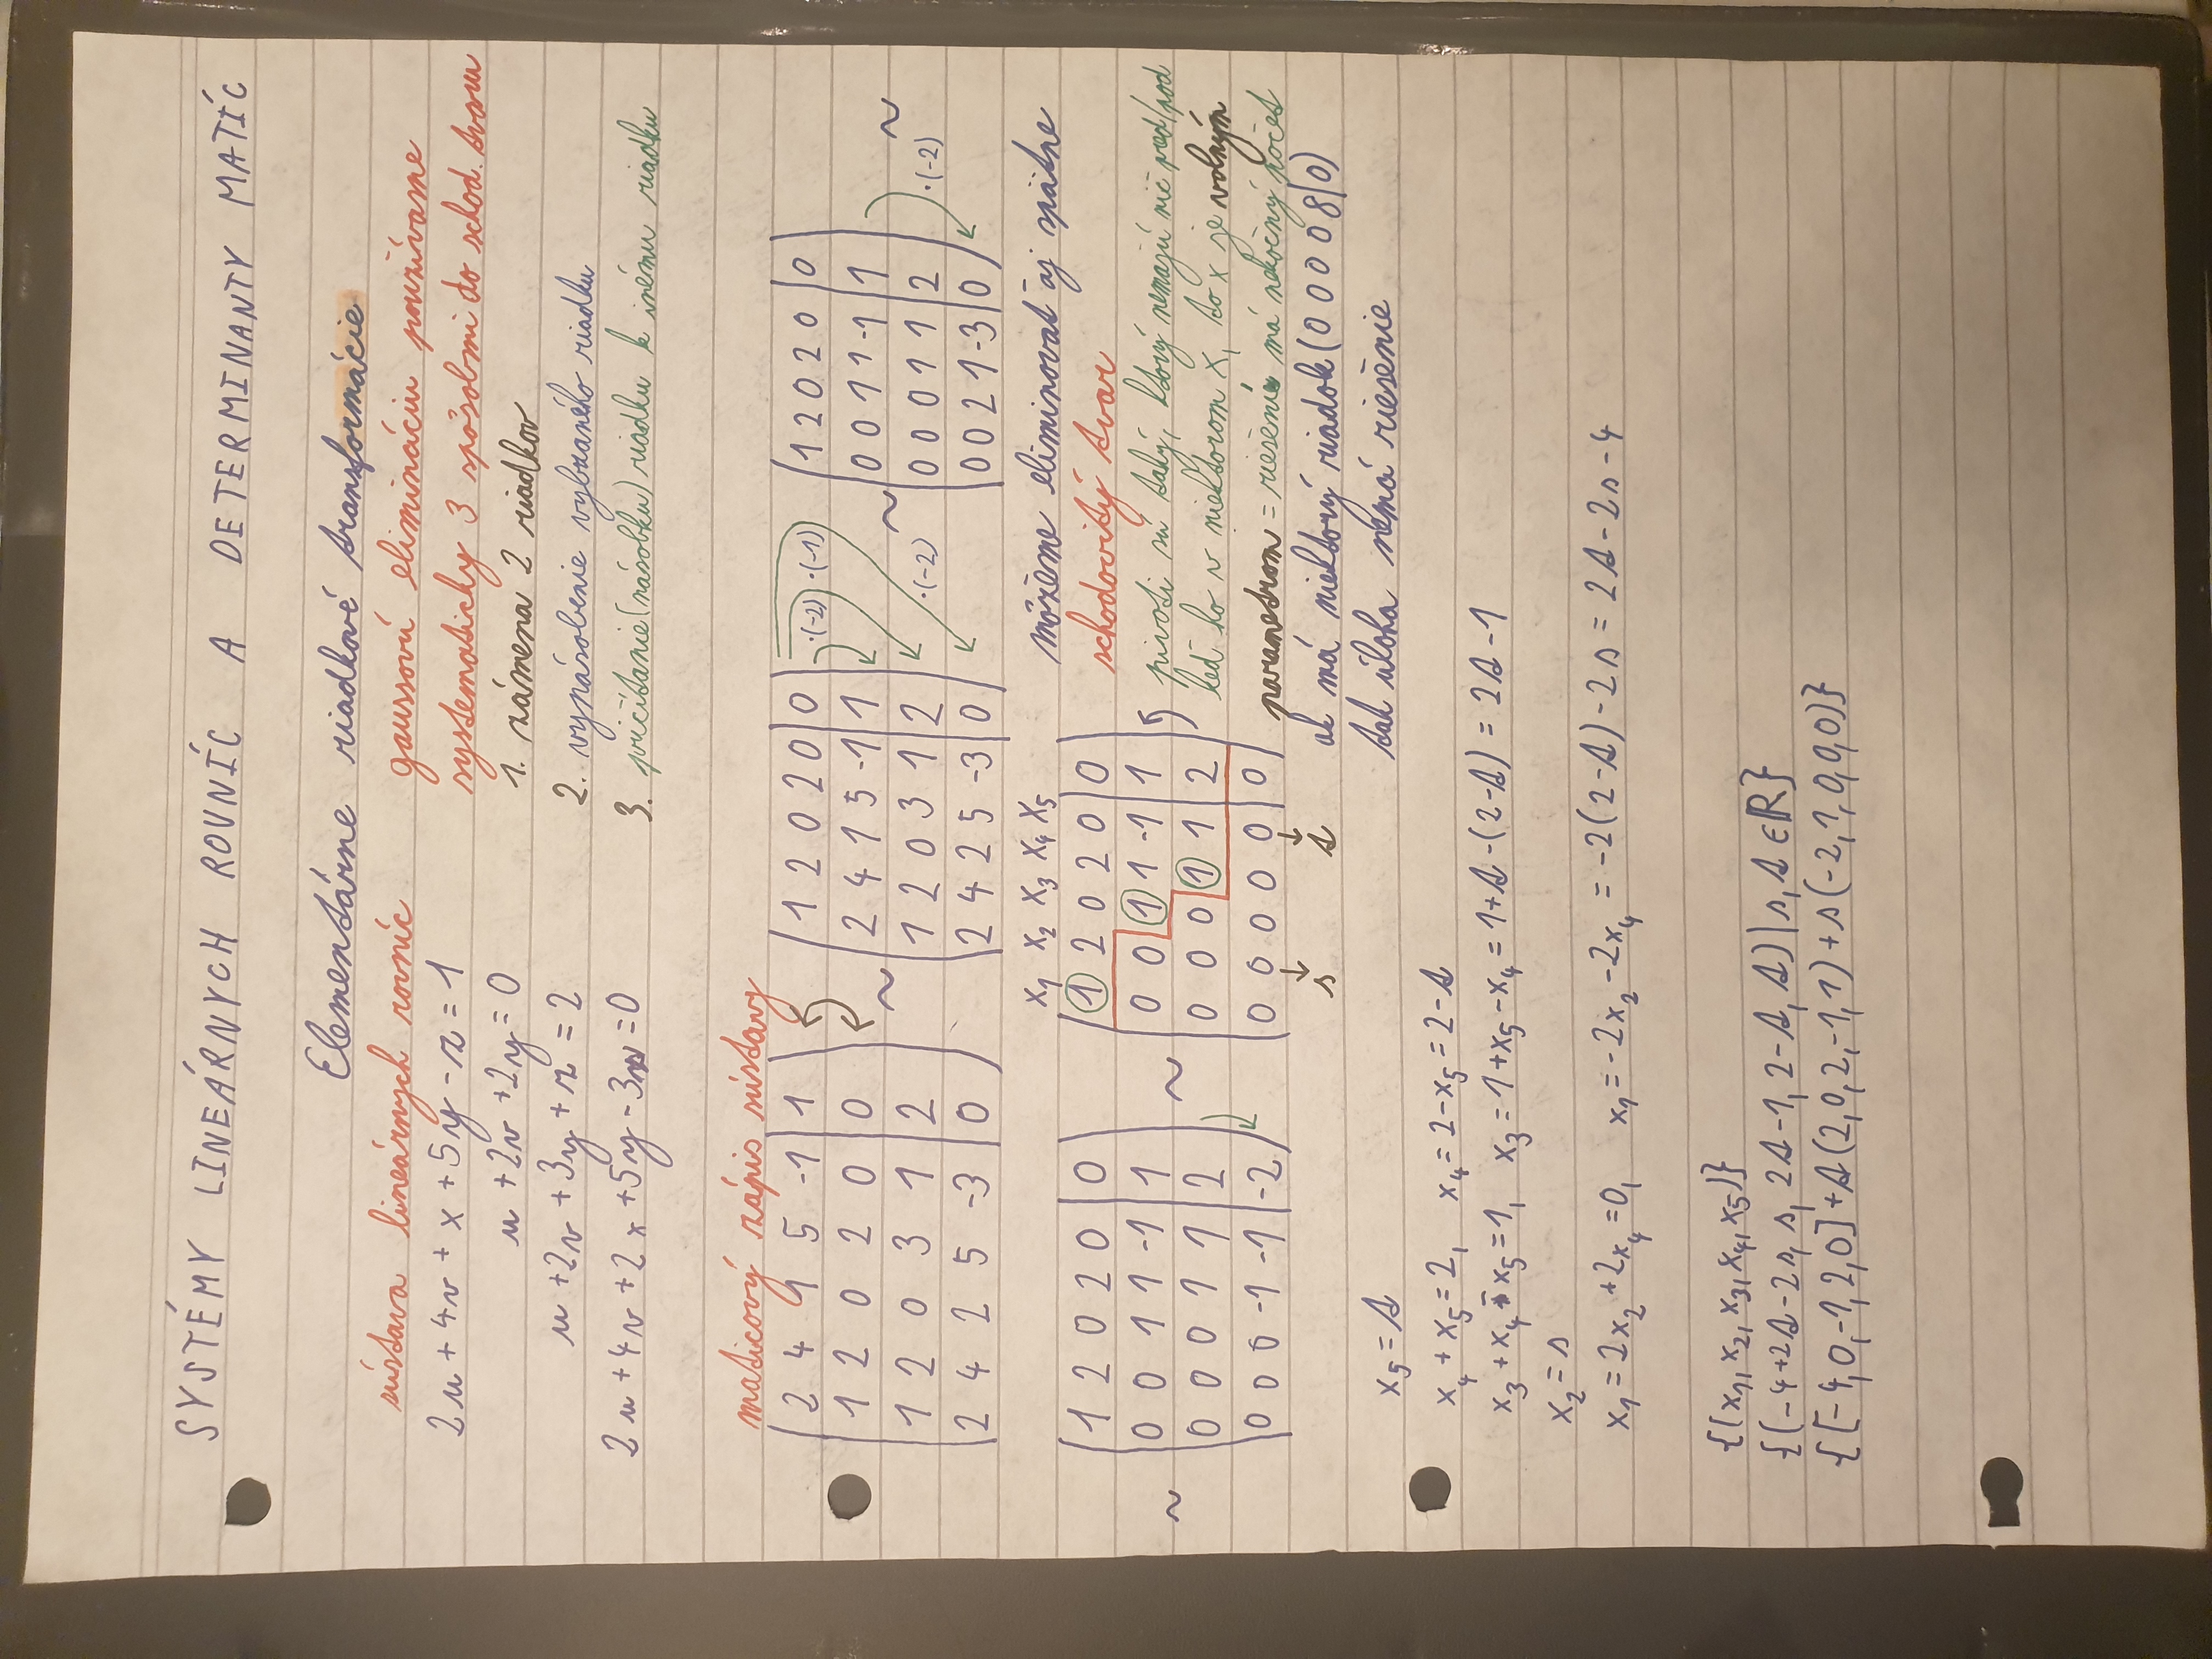 SYSTÉMY LINEÁRNYCH ROVNÍC A DETERMINANTY MATÍC
Elementárne riadkové transformácie
sústava lineárnych rovníc
2u + 4v + x + 5y - z = 1
u + 2v + 2y = 0
u + 2v + 3y + z = 2
2u + 4v + 2x + 5y - 3z = 0
gaussovú elimináciu používame
systematicky 3 spôsobmi do schod. tvaru
1. zámena 2 riadkov
2. vynásobenie vybraného riadku
3. pričítanie (násobku) riadku k inému riadku
maticový zápis sústavy
2 4 1 5 -1 | 1
1 2 0 2 0 | 0
1 2 0 3 1 | 2
2 4 2 5 -3 | 0
~
1 2 0 2 0 | 0
2 4 1 5 -1 | 1
1 2 0 3 1 | 2
2 4 2 5 -3 | 0
·(-2) ·(-1)
·(-2)
~
1 2 0 2 0 | 0
0 0 1 1 -1 | 1
0 0 0 1 1 | 2
0 0 2 1 -3 | 0
·(-2)
~
~
1 2 0 2 0 | 0
0 0 1 1 -1 | 1
0 0 0 1 1 | 2
0 0 0 -1 -1 | -2
~
x₁ x₂ x₃ x₄ x₅
1 2 0 2 0 | 0
0 0 1 1 -1 | 1
0 0 0 1 1 | 2
0 0 0 0 0 | 0
↓ ↓
s t
môžeme eliminovať aj spätne
schodovitý tvar
pivoti sú taký, ktorý nemajú nič pred/pod
keď ho v niektorom x, to x je voľným
parametrom = riešenie má nekočný počet
ak má niektorý riadok (0 0 0 0 8|0)
tak úloha nemá riešenie
x₅ = t
x₄ + x₅ = 2, x₄ = 2 - x₅ = 2 - t
x₃ + x₄ - x₅ = 1, x₃ = 1 + x₅ - x₄ = 1 + t - (2 - t) = 2t - 1
x₂ = s
x₁ = 2x₂ + 2x₄ = 0, x₁ = -2x₂ - 2x₄ = -2(2 - t) - 2s = 2t - 2s - 4
{(x₁, x₂, x₃, x₄, x₅)}
{(-4+2t-2s, s, 2t-1, 2-t, t) | s, t ∈ ℝ}
{[-4, 0, -1, 2, 0] + t(2, 0, 2, -1, 1) + s(-2, 1, 0, 0, 0)}